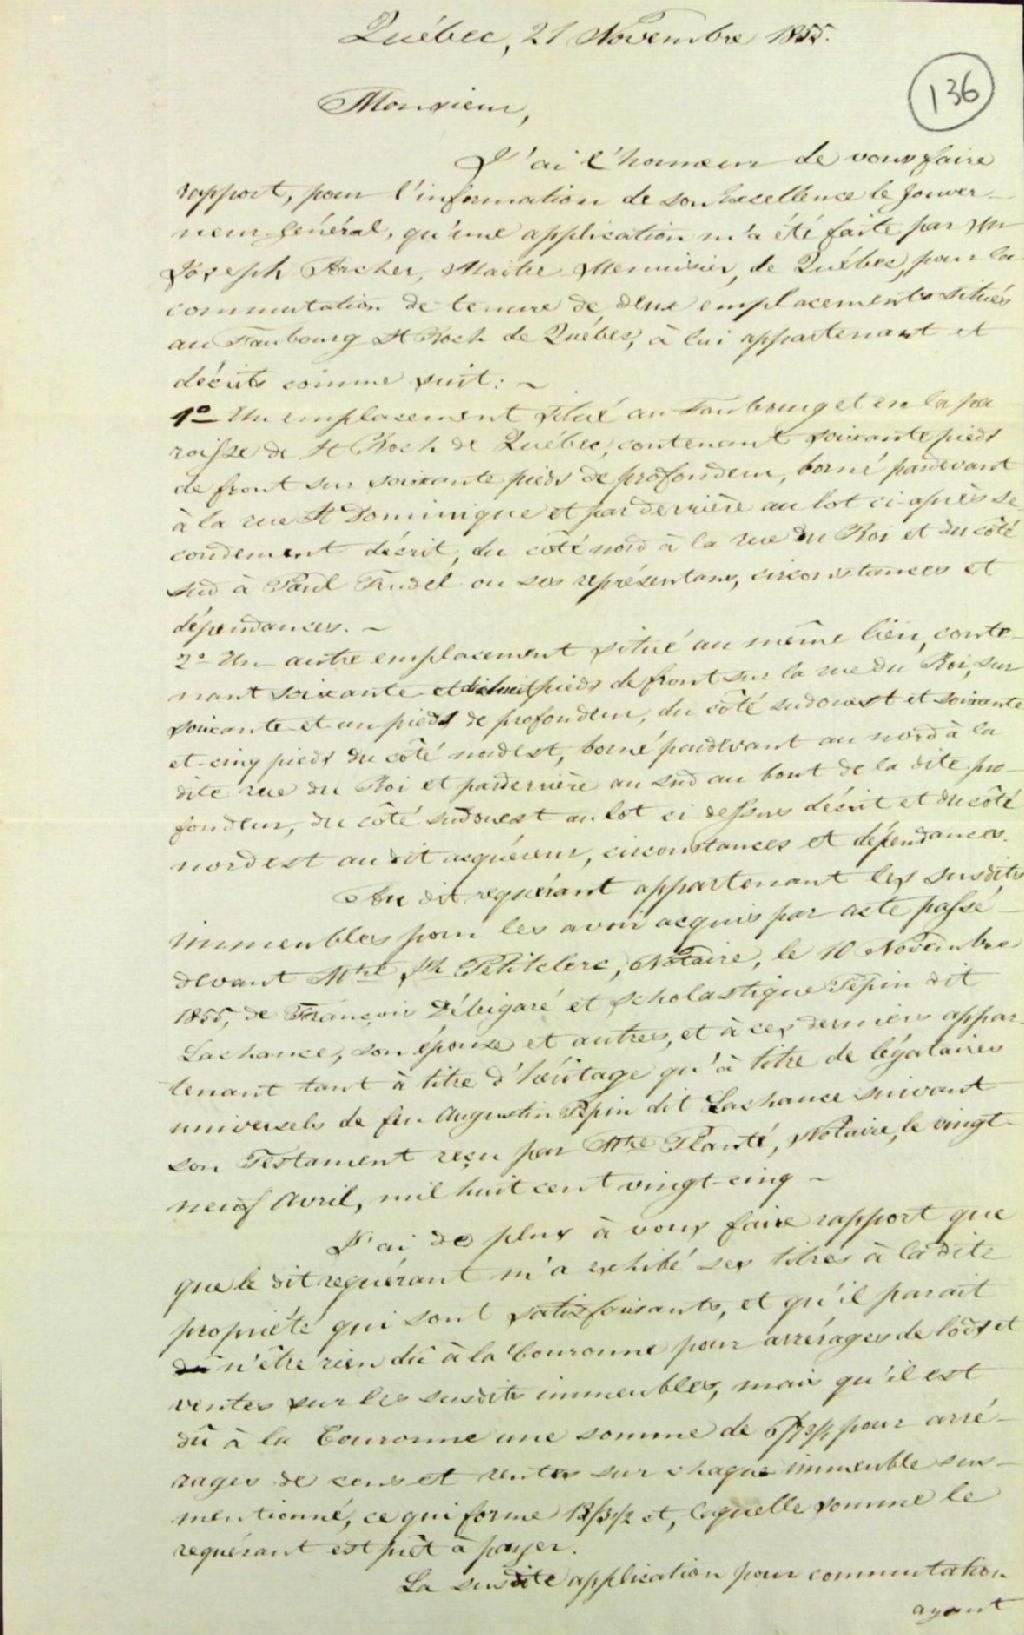 Québec, 21 Novembre 1855.
136
Monsieur,
J'ai l'honneur de vous faire
rapport, pour l'information de son Excellence le Gouver-
neur Général, qu'une application m'a été faite par Mr
Joseph Archer, Maitre Menuisier, de Québec, pour la
commutation de tenure de deux emplacements situés
au Faubourg St Roch de Québec, à lui appartenant et
décrits comme suit: ~
1º Un emplacement situé au Faubourg et en la pa
roisse de St Roch de Québec, contenant soixante pieds
de front sur soixante pieds de profondeur, borné pardevant
à la rue St Dominique et par derrière au lot ci-après se
condement décrit, du côté nord à la rue du Roi et du côté
sud à Paul ou ses représentans, circonstances et
dépendances. ~
2º Un autre emplacement situé au même lieu, conte-
nant soixante et dixhuit pieds de front sur la rue du Roi, sur
soixante et un pieds de profondeur, du côté sudouest et soixante
et cinq pieds du côté nordest, borné pardevant au nord à la
dite rue du Roi et parderrière au sud au bout de la dite pro-
fondeur, du côté sudouest au lot ci dessus décrit et du côté
nordest au dit acquéreur, circonstances et dépendances.
Au dit requérant appartenant les susdits
immeubles pour les avoir acquis par acte passé
devant Mtre Jh Petitclerc, Notaire, le 10 Novembre
1855, de François Débigaré et Scholastique Pepin dit
Lachance, son épouse et autres, et à ces derniers appar-
tenant tant à titre d'héritage qu'à titre de légataires
universels de feu Augustin Pepin dit Lachance suivant
son Testament reçu par Mtre Planté, Notaire, le vingt-
neuf Avril, mil huit cent vingt-cinq ~
J'ai de plus à vous faire rapport que
que le dit requérant m'a exhibé ses titres à la dite
propriété qui sont satisfaisants, et qu'il parait
n'être rien dû à la Couronne pour arrérages de lods et
ventes sur les susdits immeubles, mais qu'il est
dû à la Couronne une somme de pour arré-
rages de cens et rentes sur chaque immeuble sus-
mentionné, ce qui forme et, laquelle somme le
requérant est prêt à payer.
La susdite application pour commutation
ayant